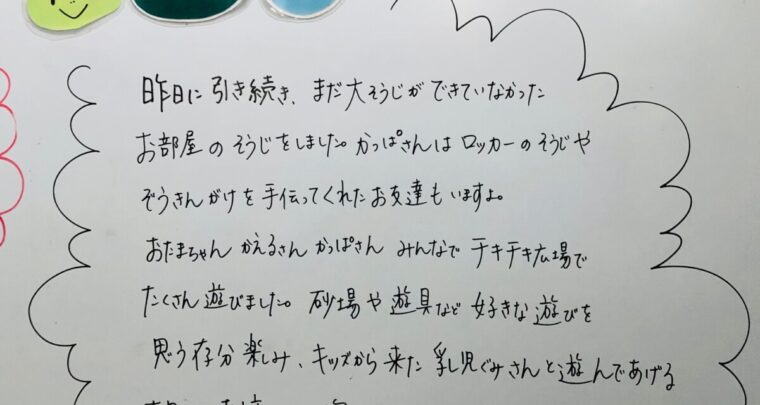 昨日に引き続き、まだ大そうじができていなかった
お部屋のそうじをしました。かっぱさんはロッカーのそうじや
ぞうきんがけを手伝ってくれたお友達もいますよ。
おたまちゃん かえるさん かっぱさん みんなで チキチキ広場で
たくさん遊びました。砂場や遊具など好きな遊びを
思う存分楽しみ、キッズから来た乳児ぐみさんと遊んであげる